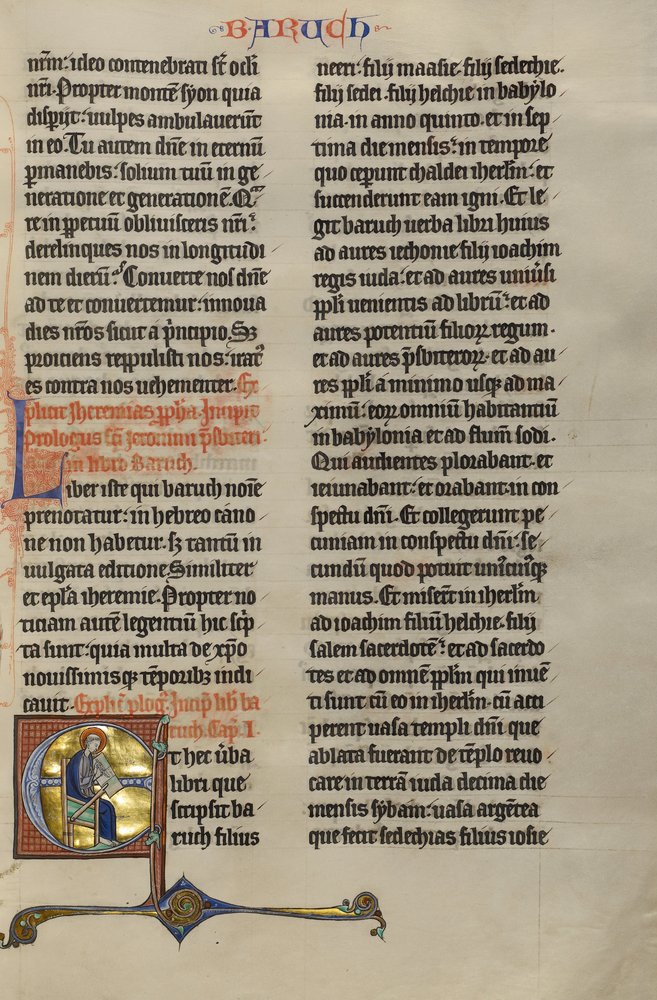 BARUCH
nr̄m: ideo contenebrati sūt ocl̄i
nr̄i. Propter montē syon quia
disperijt: uulpes ambulauerūt
in eo. Tu autem dn̄e in eternū
ꝑmanebis: solium tuū in ge
neratione et generationē. Qua
re in ꝑpetuū obliuisceris nr̄i:
derelinques nos in longitudi
nem dierū? Conuerte nos dn̄e
ad te et conuertemur: innoua
dies nr̄os sicut a pͥncipio. Sꝫ
proiciens reppulisti nos: irat᷒
es contra nos uehementer. Ex
plicit Jheremias ꝓpħa. Incipit
prologus sc̄i Jeronimi pr̄sbiteri
in libro Baruch.
Liber iste qui baruch noīe
prenotatur: in hebreo cano
ne non habetur. sꝫ tantū in
uulgata editione Similiter
et epl̄a iheremie. Propter no
ticiam autē legentiū hic scͥp
ta sunt: quia multa de xp̄o
nouissimisqꝫ tēporibꝫ indi
cauit. Explic̄ ꝓlog᷒. Incip̄ lib̄ ba
ruch. Cap̄. I.
Et hec ūba
libri que
scripsit ba
ruch filius
neeri. filij maasie. filij sedechie.
filij sedei. filij helchie in babylo
nia. in anno quinto. et in sep
tima die mensis: in tempore
quo ceperunt chaldei iherl̄m: et
succenderunt eam igni. Et le
git baruch uerba libri huius
ad aures iechonie filij ioachim
regis iuda: et ad aures uniūsi
ppl̄i uenientis ad librū: et ad
aures potentiū filioꝝ regum.
et ad aures pͥsbiteroꝝ. et ad au
res ppl̄i a minimo usqꝫ ad ma
ximū: eoꝝ omniū habitantiū
in babylonia et ad flum̄ sodi.
Qui audientes plorabant. et
ieiunabant: et orabant in con
spectu dn̄i. Et collegerunt pe
cuniam in conspectu dn̄i: se
cundū quod potuit uni᷒cuiusqꝫ
manus. Et miserūt in iherl̄m
ad ioachim filiū helchie. filij
salem sacerdotē: et ad sacerdo
tes et ad omnē ppl̄m qui inuē
ti sunt cū eo in iherl̄m. cū acci
perent uasa templi dn̄i que
ablata fuerant de tēplo reuo
care in terrā iuda decima die
mensis syban: uasa argētea
que fecit sedechias filius iosie